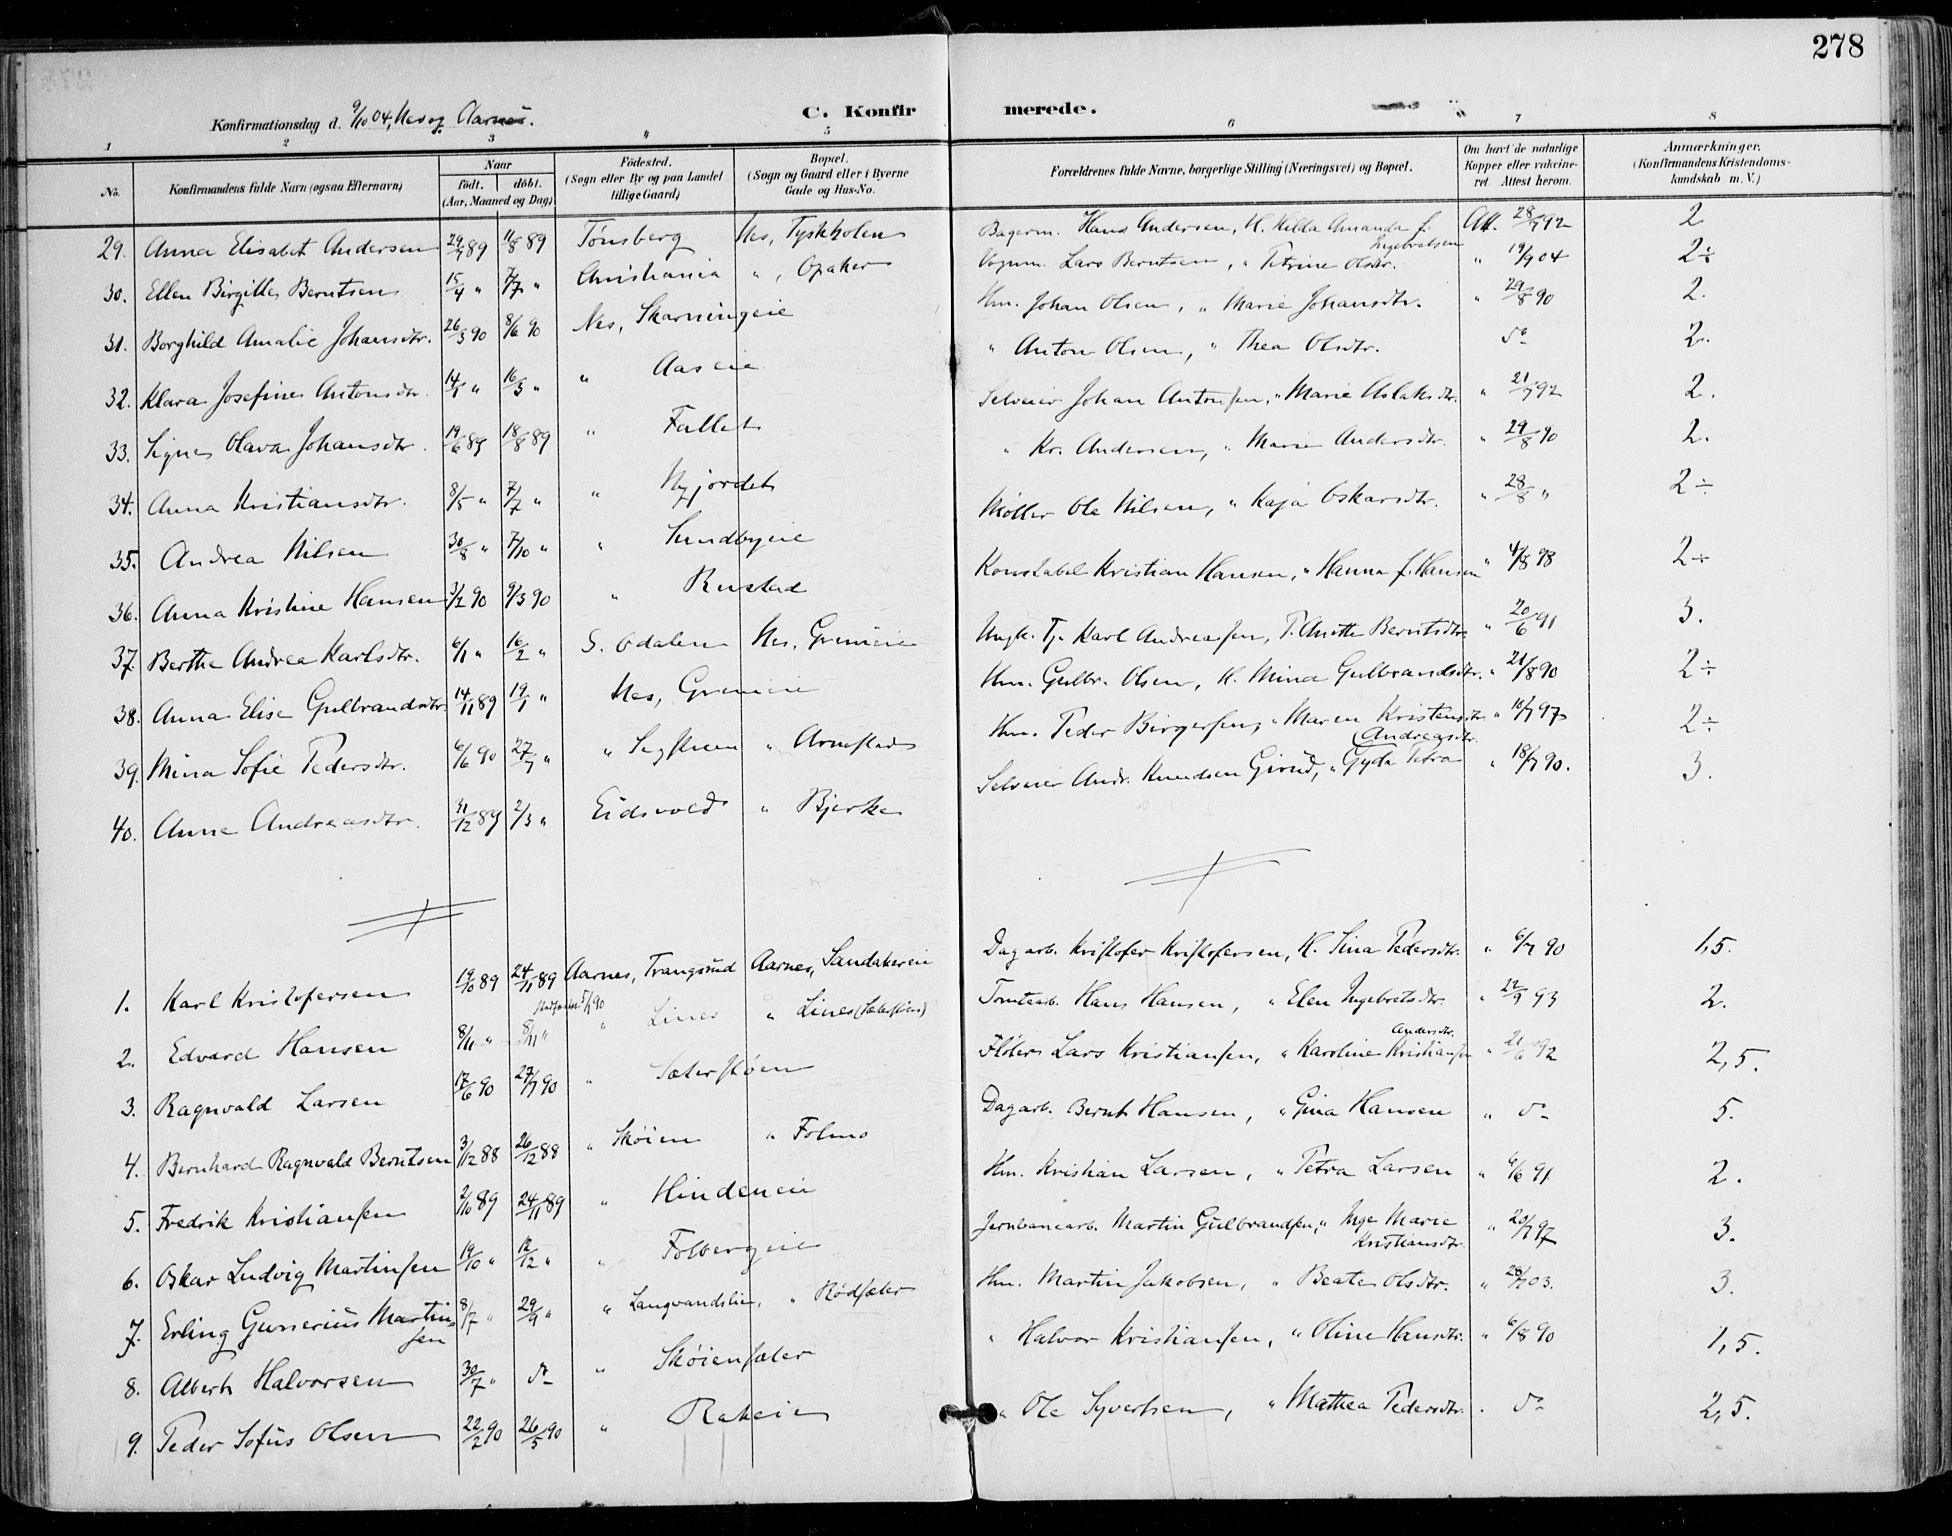 278
Konfirmationsdag d. 9/10 04, Nes og Aarnes.
C. Konfirmerede.
1 2 3 4 5 6 7 8
No. Konfirmandens fulde Navn (ogsaa Efternavn) Naar født. døbt. (Aar, Maaned og Dag) Fødested. (Sogn eller By og paa Landet tillige Gaard) Bopæl. (Sogn og Gaard eller i Byerne Gade og Hus-No. Forældrenes fulde Navne, borgerlige Stilling (Næringsvei) og Bopæl. Om havt de naturlige Kopper eller vakcineret. Attest herom. Anmærkninger. (Konfirmandens Kristendomskundskab m. V.)
29. Anna Elisabet Andersen 29/7 89 11/8 89 Tønsberg Nes, Tyskholen Bagerm. Hans Andersen, H. Hilda Amanda f. Ingebretsen Att. 28/7 92 2
30. Ellen Birgitte Berntsen 15/4 " 7/7 " Christiania " , Opaker Vognm. Lars Berntsen, " Petrine Olsdtr. " 19/9 04 2÷
31. Borghild Amalie Johansdtr. 26/3 90 8/6 90 Nes, Skarningeie Hm. Johan Olsen, " Marie Johansdtr. " 29/8 90 2.
32. Klara Josefine Antonsdtr. 14/1 " 16/3 " " Aaseie " Anton Olsen, " Thea Olsdtr. do 2.
33. Signe Olava Johansdtr. 19/6 89 18/8 89 " Fallet Selveier Johan Antonsen, " Marie Aslaksdtr. " 21/7 92 2.
34. Anna Kristiansdtr. 8/5 " 7/7 " " Nyjordet " Kr. Andersen, " Marie Andersdtr. " 29/8 90 2.
35. Andrea Nilsen 30/8 " 7/10 " " Sundbyeie Møller Ole Nilsen, " Kaja Oskarsdtr. " 28/8 " 2÷
36. Anna Kristine Hansen 3/2 90 9/3 90 " Rustad Konstabel Kristian Hansen, " Hanna f. Hansen " 4/8 98 2÷
37. Berthe Andrea Karlsdtr. 6/1 " 16/2 " S. Odalen Nes, Greneie Ungk. Tj. Karl Andreassen, P. Anette Berntsdtr. " 20/6 91 3.
38. Anna Elise Gulbrandsdtr. 14/11 89 19/1 " Nes, Greneie Hm. Gulbr. Olsen, H. Mina Gulbrandsdtr. " 21/8 90 2÷
39. Mina Sofie Pedersdtr. 6/6 90 27/7 " " " Arnestad Hm. Peder Birgersen, " Maren Kristensdtr. " 10/7 97 2÷
40. Anna Andreasdtr. 31/12 89 2/3 " Eidsvold " Bjerke Selveier Andr. Knudsen Girud, " Gyda Petra (Andreasdtr. " 18/7 90. 3.
1. Karl Kristofersen 19/10 89 24/11 89 Aarnes, Trangsund Aarnes, Sandakereie Dagarb. Kristofer Kristofersen, H. Sina Pedersdtr. " 6/7 90 1,5.
2. Edvard Hansen 8/11 " 8/11 " " Lines " Lines Tomtearb. Hans Hansen, " Elen Ingebretsdtr. " 22/9 93 2.
3. Ragnvald Larsen 17/6 90 27/7 90 " Sæterstøen Fløter Lars Kristiansen, " Karoline Kristiansen Andersdtr. " 21/6 92 2,5.
4. Bernhard Ragnvald Berntsen 3/12 88 26/12 88 " Skøien " Folmo Dagarb. Bernt Hansen, " Gina Hansen " do 5.
5. Fredrik Kristiansen 2/10 89 24/11 89 " Hindeneie Hm. Kristian Larsen, " Petra Larsen " 6/6 91 2.
6. Oskar Ludvig Martinsen 19/10 " 12/12 " " Folbergeie Jernbanearb. Martin Gulbrandsen, " Inge Marie Kristiansdtr. " 20/7 97 3.
7. Erling Gunerius Martinsen 8/7 " 29/9 " " Langvandslien, " Rødsæter Hm. Martin Jakobsen, " Beate Olsdtr. " 28/7 03. 3.
8. Albert Halvorsen 30/7 " do " Skøiensæter " Halvor Kristiansen, " Oline Hansdtr. " 6/8 90 1,5.
9. Peder Sofus Olsen 22/2 90 26/5 90 " Rakeie " Ole Syversen, " Mathea Pedersdtr. " do 2,5.